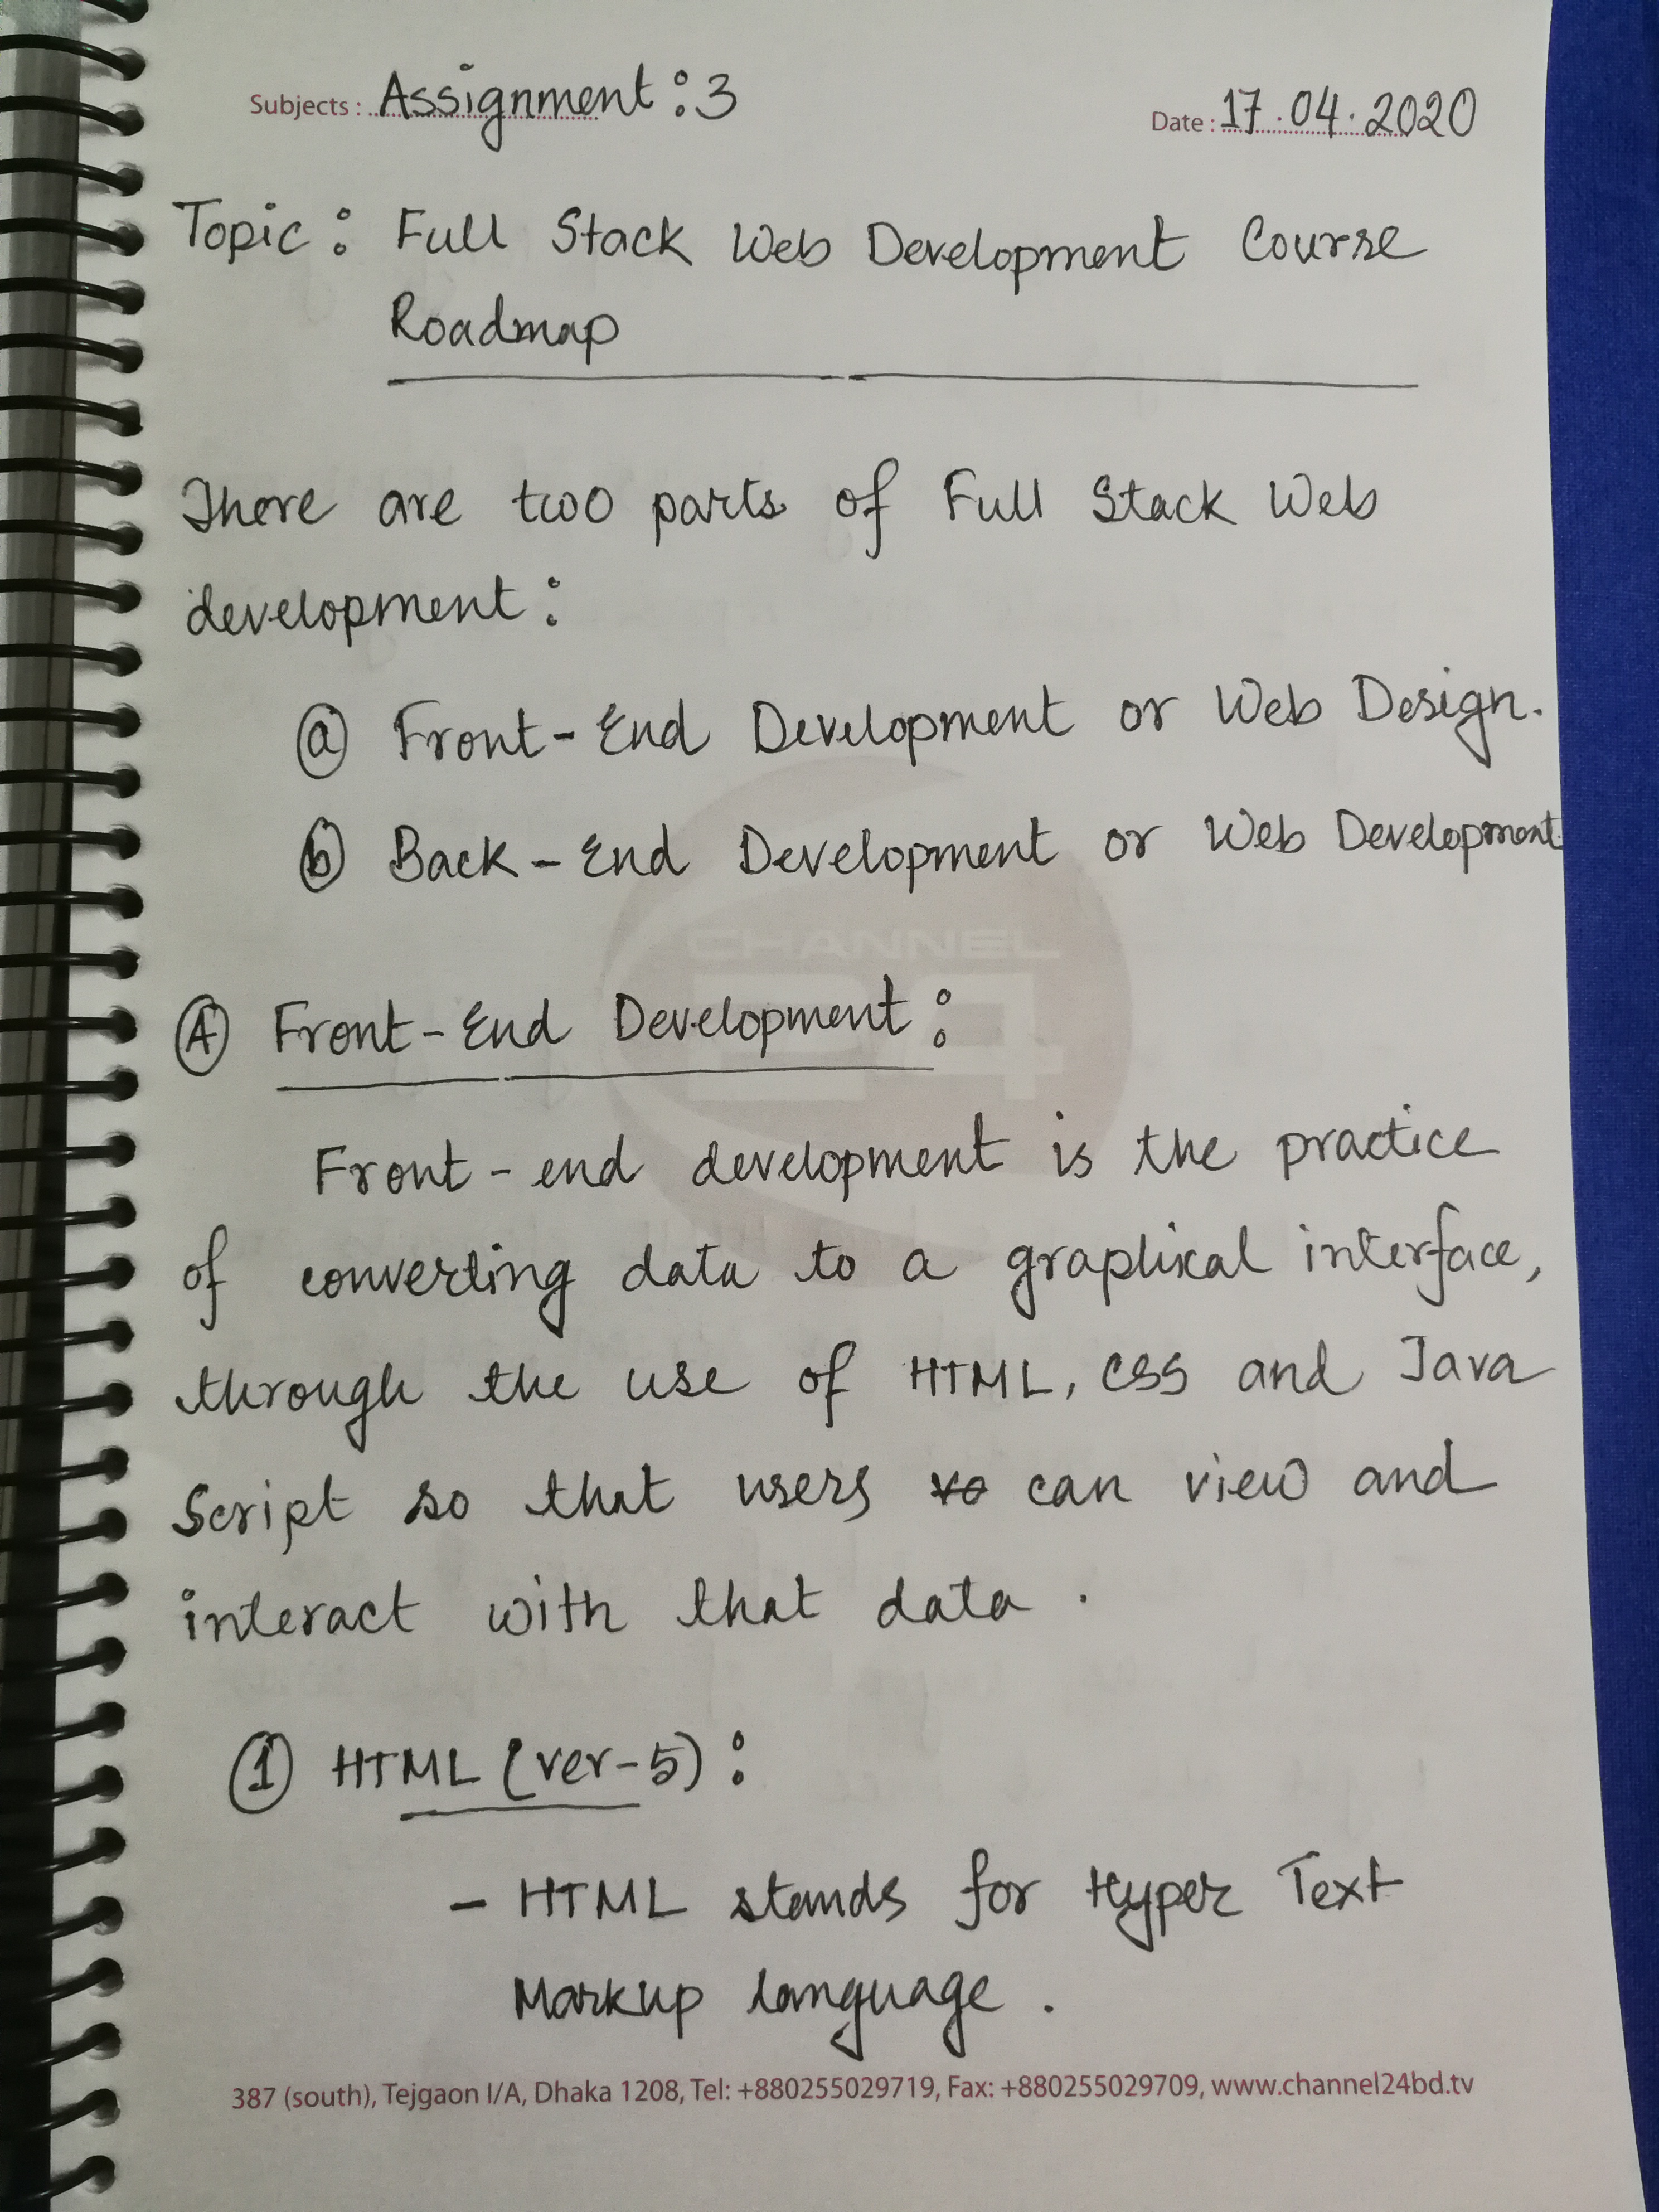 Subjects : Assignment : 3
Date : 17.04.2020
Topic : Full Stack Web Development Course
Roadmap
There are two parts of Full Stack Web
development :
a Front-End Development or Web Design.
b Back-End Development or Web Development.
CHANNEL
24
A Front-End Development :
Front-end development is the practice
of converting data to a graphical interface,
through the use of HTML, CSS and Java
Script so that users can view and
interact with that data .
1 HTML (ver-5) :
- HTML stands for Hyper Text
Markup language .
387 (south), Tejgaon I/A, Dhaka 1208, Tel: +880255029719, Fax: +880255029709, www.channel24bd.tv